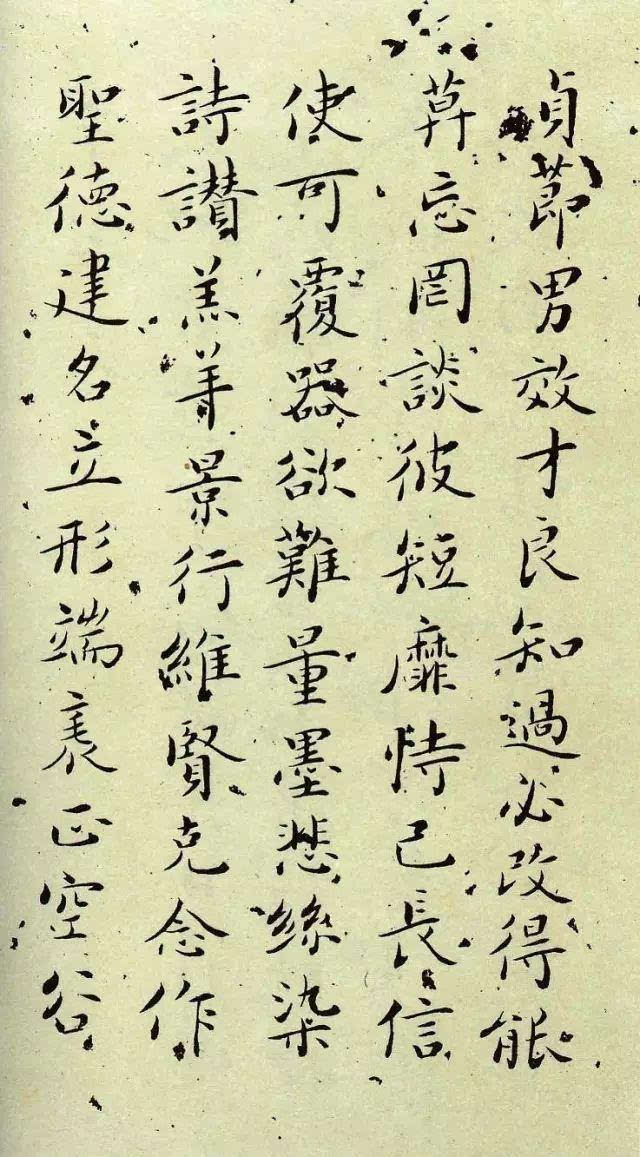 貞節男效才良知過必改得能
莫忘罔談彼短靡恃己長信
使可覆器欲難量墨悲絲染
詩讃羔羊景行維賢克念作
聖德建名立形端表正空谷